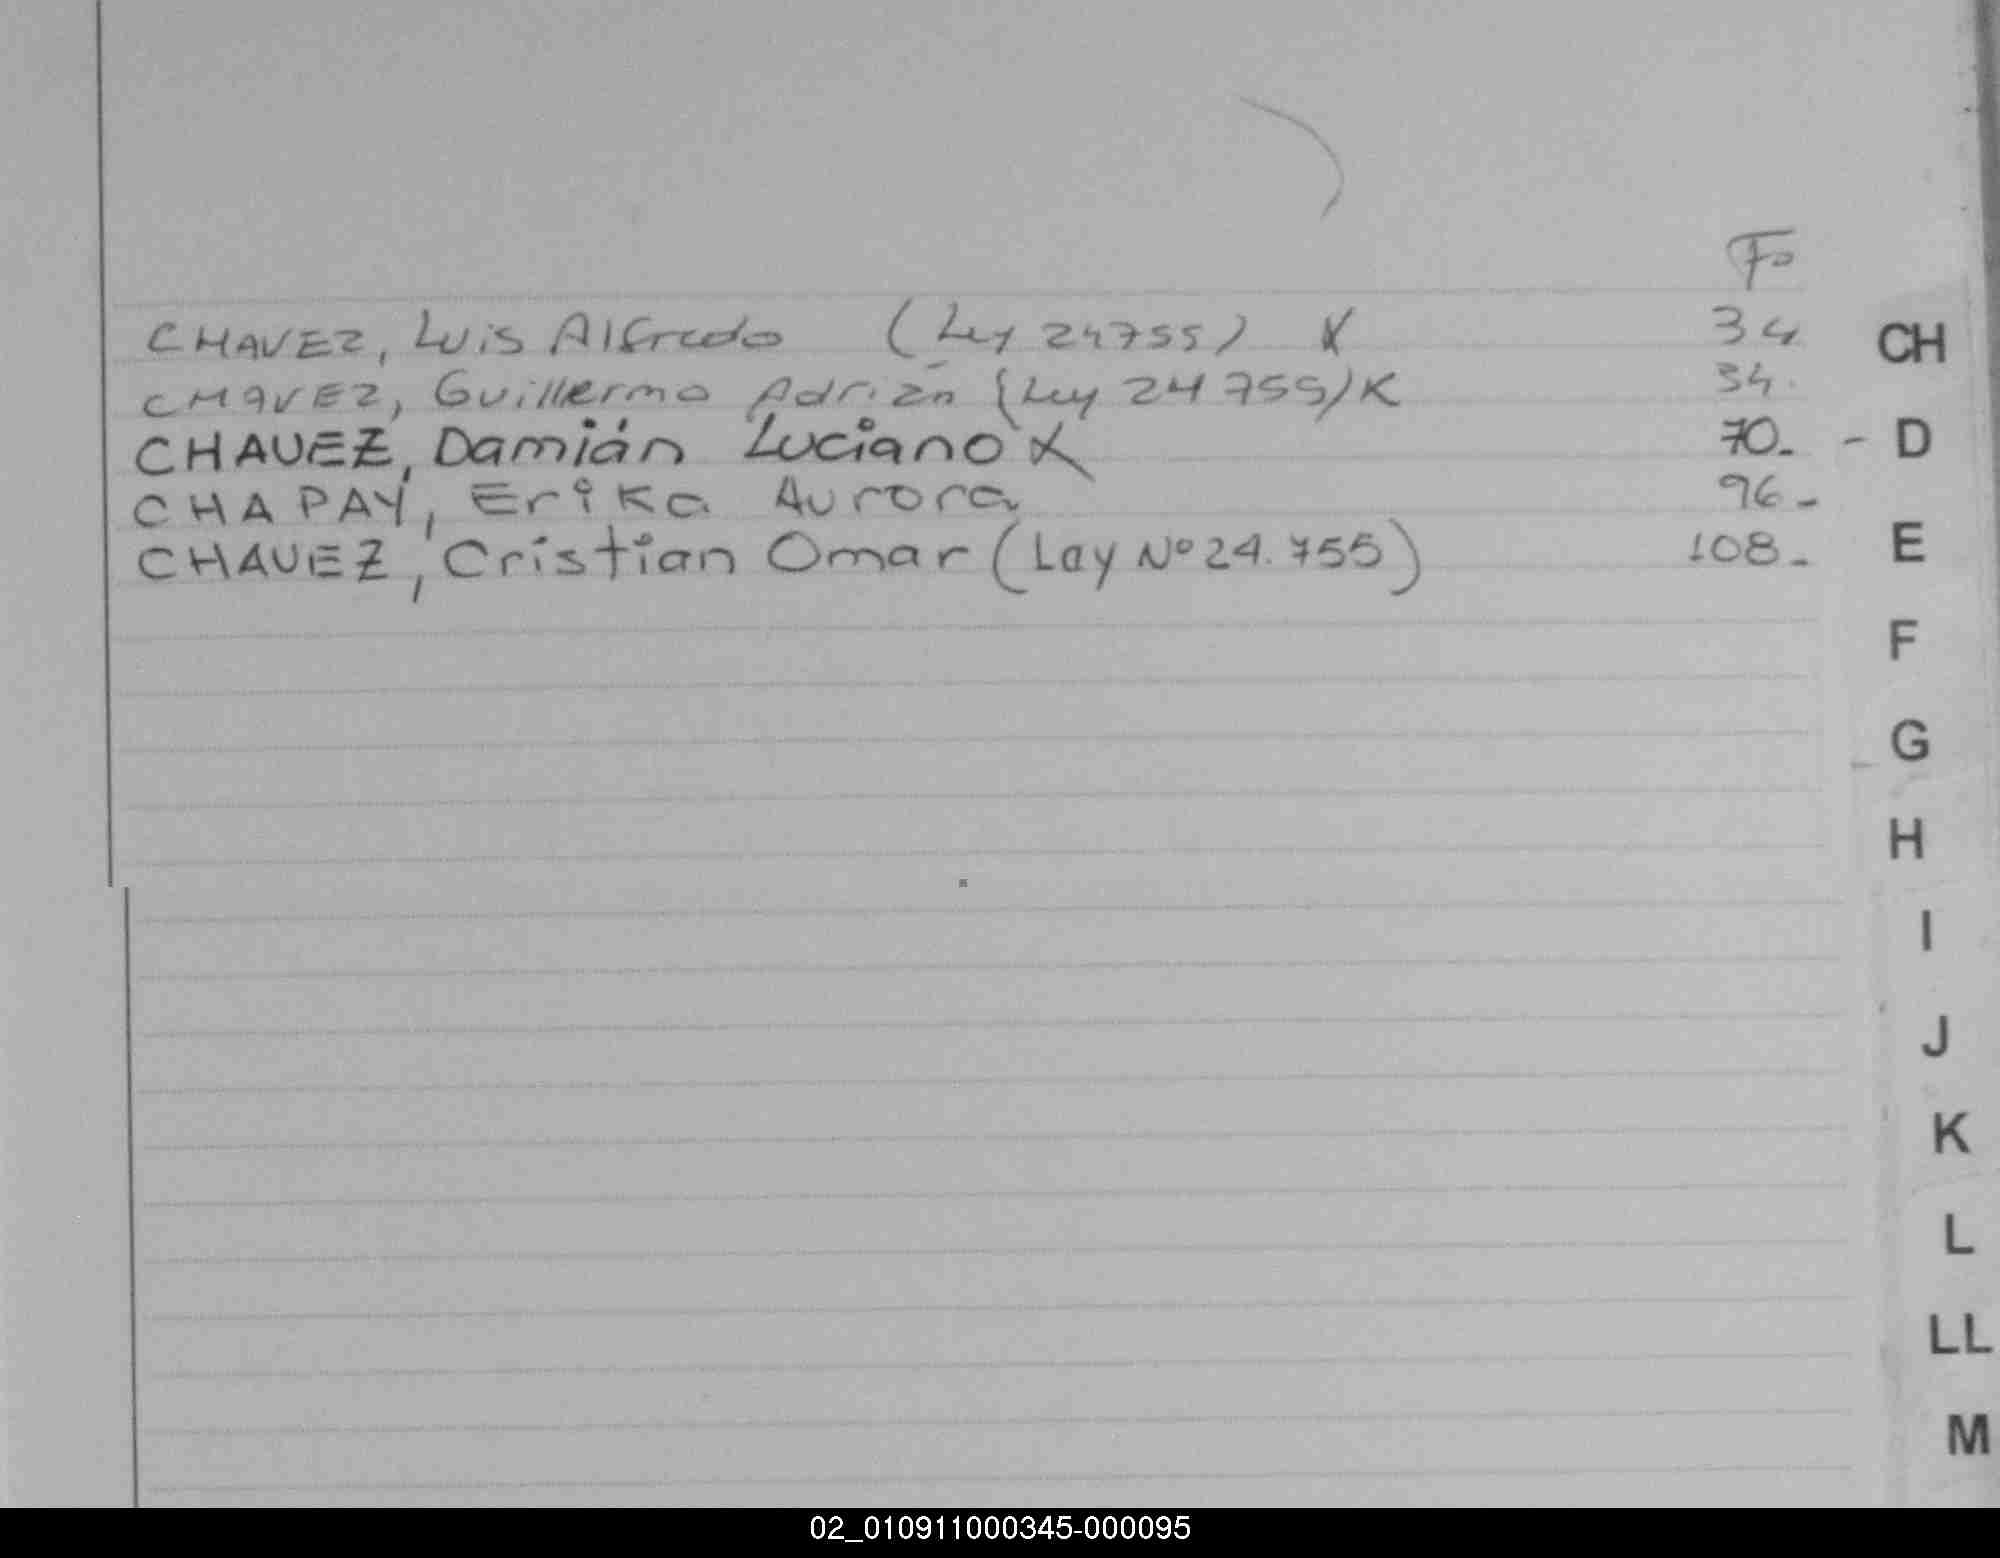 Fo
CHAVEZ, Luis Alfredo (Ley 24755) X 34
CHAVEZ, Guillermo Adrián (Ley 24755) X 34.
CHAVEZ, Damián Luciano X 70.-
CHAPAY, Erika Aurora 96.-
CHAVEZ, Cristian Omar (Ley Nº 24.755) 108.-
CH
D
E
F
G
H
I
J
K
L
LL
M
02_010911000345-000095